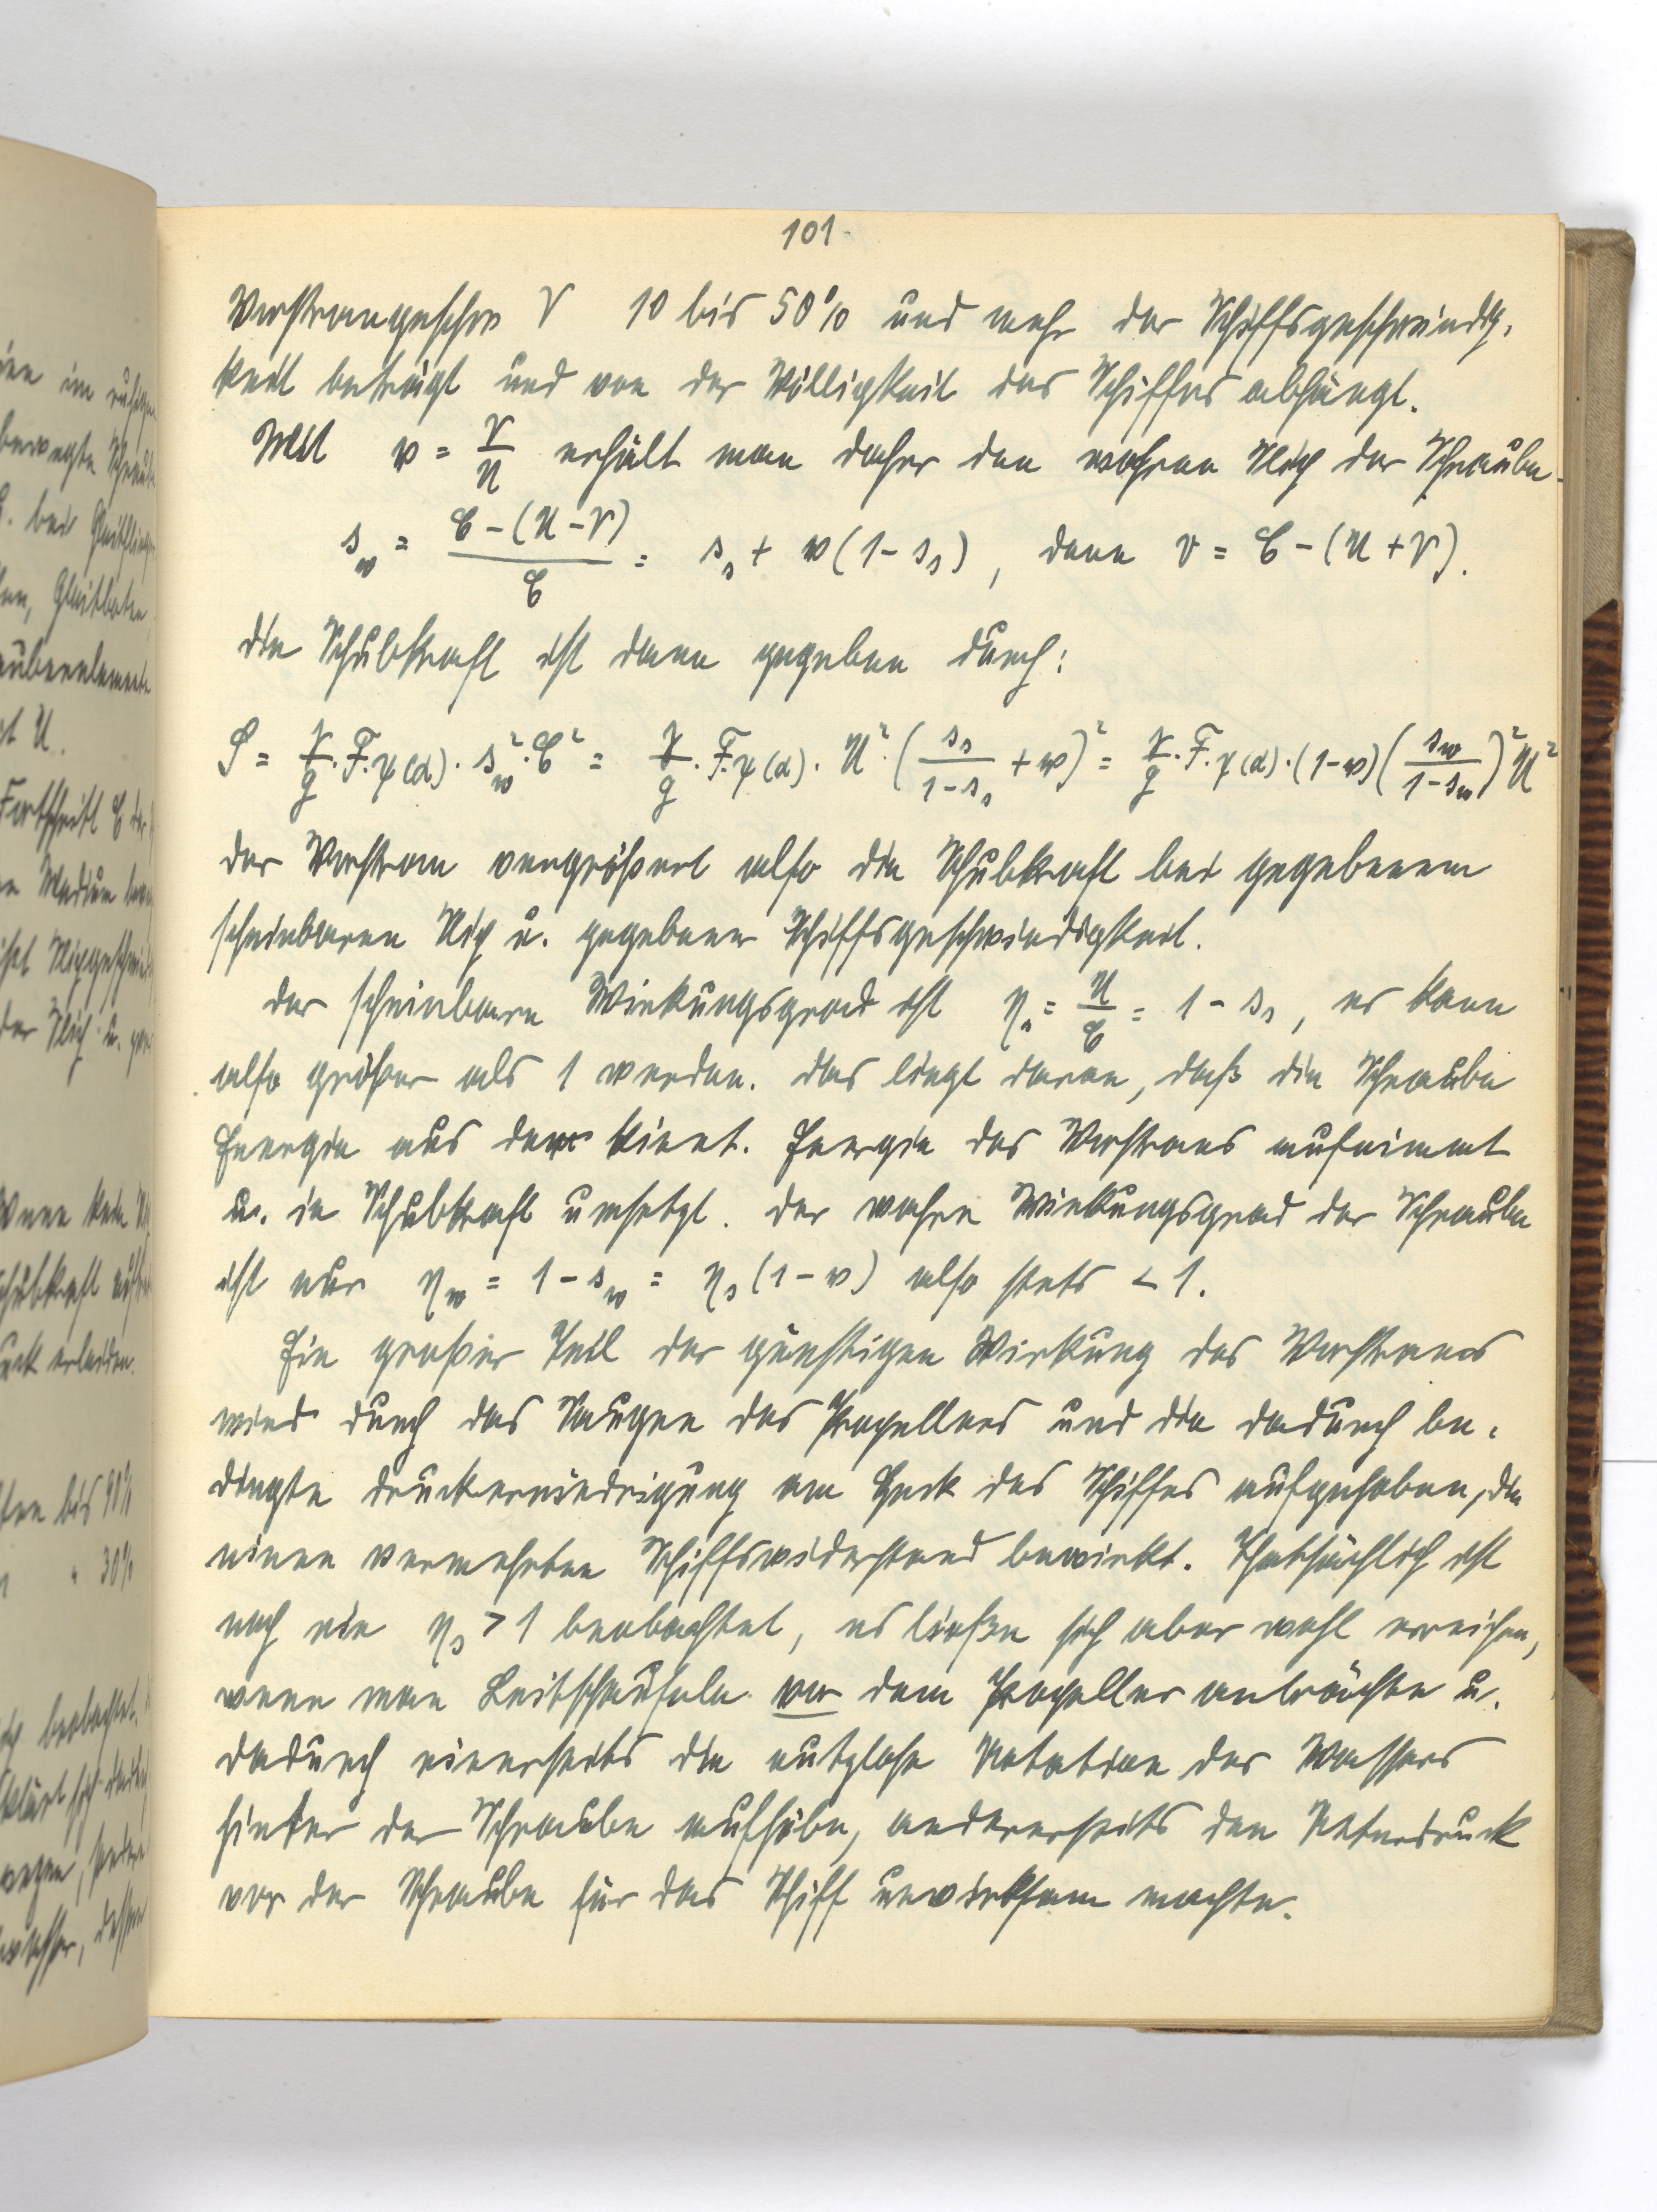 101.
Vorstromgeschw V 10 bis 50% und mehr der Schiffsgeschwindig-
keit beträgt und von der Völligkeit des Schiffes abhängt.
Mit w = V/U erhält man daher den wahren Slip der Schraube
s_w = (C-(U-V))/C = s_s + w(1-s_s), denn v = C-(U+V).
die Schubkraft ist dann gegeben durch:
S = γ/g · F · φ(α) · s_w² · C² = γ/g · F · φ(α) · U² · (s_s/(1-s_s) + w)² = γ/g · F · φ(α) · (1-w) (s_w/(1-s_w))² U²
der Vorstrom vergrößert also die Schubkraft bei gegebenem
scheinbaren Slip u. gegebener Schiffsgeschwindigkeit.
der scheinbare Wirkungsgrad ist η_s = U/C = 1 - s_s, er kann
also größer als 1 werden. das liegt daran, daß die Schraube
Energie aus der kinet. Energie des Vorstroms aufnimmt
u. in Schubkraft umsetzt. der wahre Wirkungsgrad der Schraube
ist nur η_w = 1 - s_w = η_s (1-w) also stets < 1.
Ein großer Teil der günstigen Wirkung des Vorstroms
wird durch das Saugen des Propellers und die dadurch be-
dingte druckerniedrigung am Heck des Schiffes aufgehoben, die
einen vermehrten Schiffswiderstand bewirkt. Thatsächlich ist
noch nie η_s > 1 beobachtet, es ließen sich aber wohl erreichen,
wenn man Leitschaufeln vor dem Propeller anbrächte u.
dadurch einerseits die nutzlose Rotation des Wassers
hinter der Schraube aufhöbe, andererseits den Unterdruck
vor der Schraube für das Schiff unwirksam machte.
ien im ruhigen
bewegte Schraube
aubenelemente
it U.
Fortschritt C der
Wenn kein
Schubkraft auf
uck erleiden.
bis 90%
" 30%
beobachtet.
klärt sich dadurch